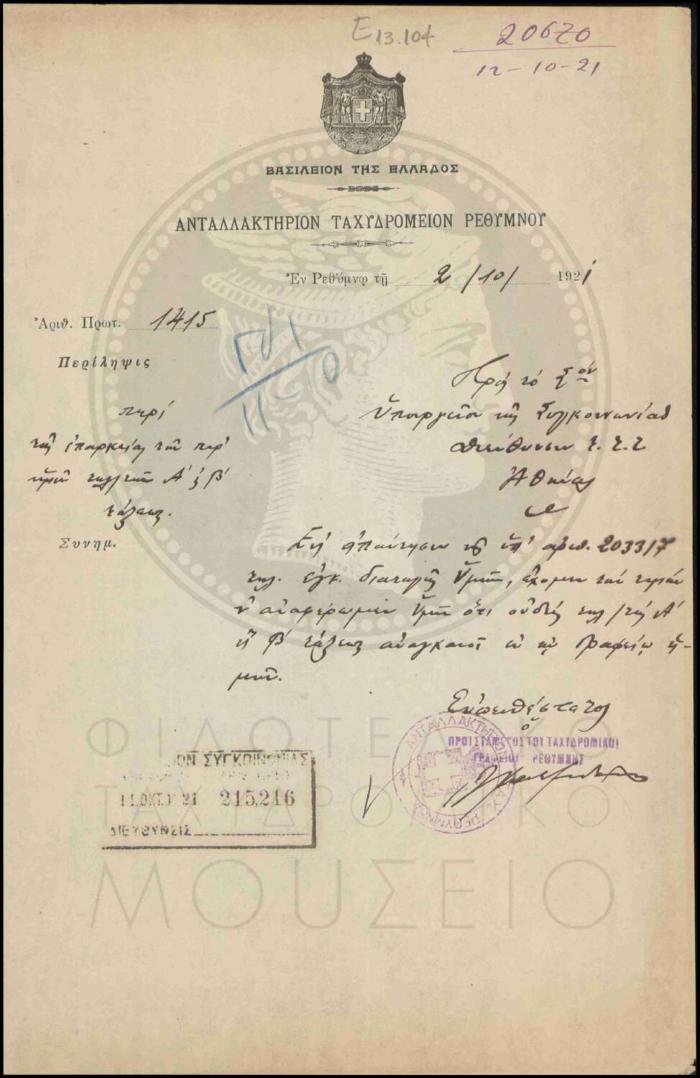 E13.104
20670
12-10-21
ΒΑΣΙΛΕΙΟΝ ΤΗΣ ΕΛΛΑΔΟΣ
ΑΝΤΑΛΛΑΚΤΗΡΙΟΝ ΤΑΧΥΔΡΟΜΕΙΟΝ ΡΕΘΥΜΝΟΥ
Ἐν Ρεθύμνῳ τῇ 2/10/ 1921
Ἀριθ. Πρωτ. 1415
Περίληψις
περὶ
τῆς ἐπαρκείας τῶν παρ'
ἡμῖν Α' ἢ Β'
τάξεως.
Συνημ.
Πρὸς τὸ Σον
Ὑπουργεῖον τῆς Συγκοινωνίας
Διεύθυνσιν Τ.Τ.Τ
Ἀθήνας
Εἰς ἀπάντησιν τῆς ὑπ' ἀριθ. 20331/7
τηλ. ἐγκ. διαταγῆς Ὑμῶν, ἔχομεν τὴν τιμὴν
ν' ἀναφέρωμεν Ὑμῖν ὅτι οὐδεὶς Α'
ἢ Β' τάξεως ἀναγκαιοῖ ἐν τῷ Γραφείῳ ἡ-
μῶν.
Εὐπειθέστατος
ὁ
ΠΡΟΪΣΤΑΜΕΝΟΣ ΤΟΥ ΤΑΧΥΔΡΟΜΙΚΟΥ
ΓΡΑΦΕΙΟΥ ΡΕΘΥΜΝΟΥ
ΑΝΤΑΛΛΑΚΤΗΡΙΟΝ
ΡΕΘΥΜΝΗΣ
ΣΥΓΚΟΙΝΩΝΙΑΣ
11.ΟΚΤ. 21 215,216
ΔΙΕΥΘΥΝΣΙΣ
ΦΙΛΟΤΕΛΙΚΟ
ΤΑΧΥΔΡΟΜΙΚΟ
ΜΟΥΣΕΙΟ